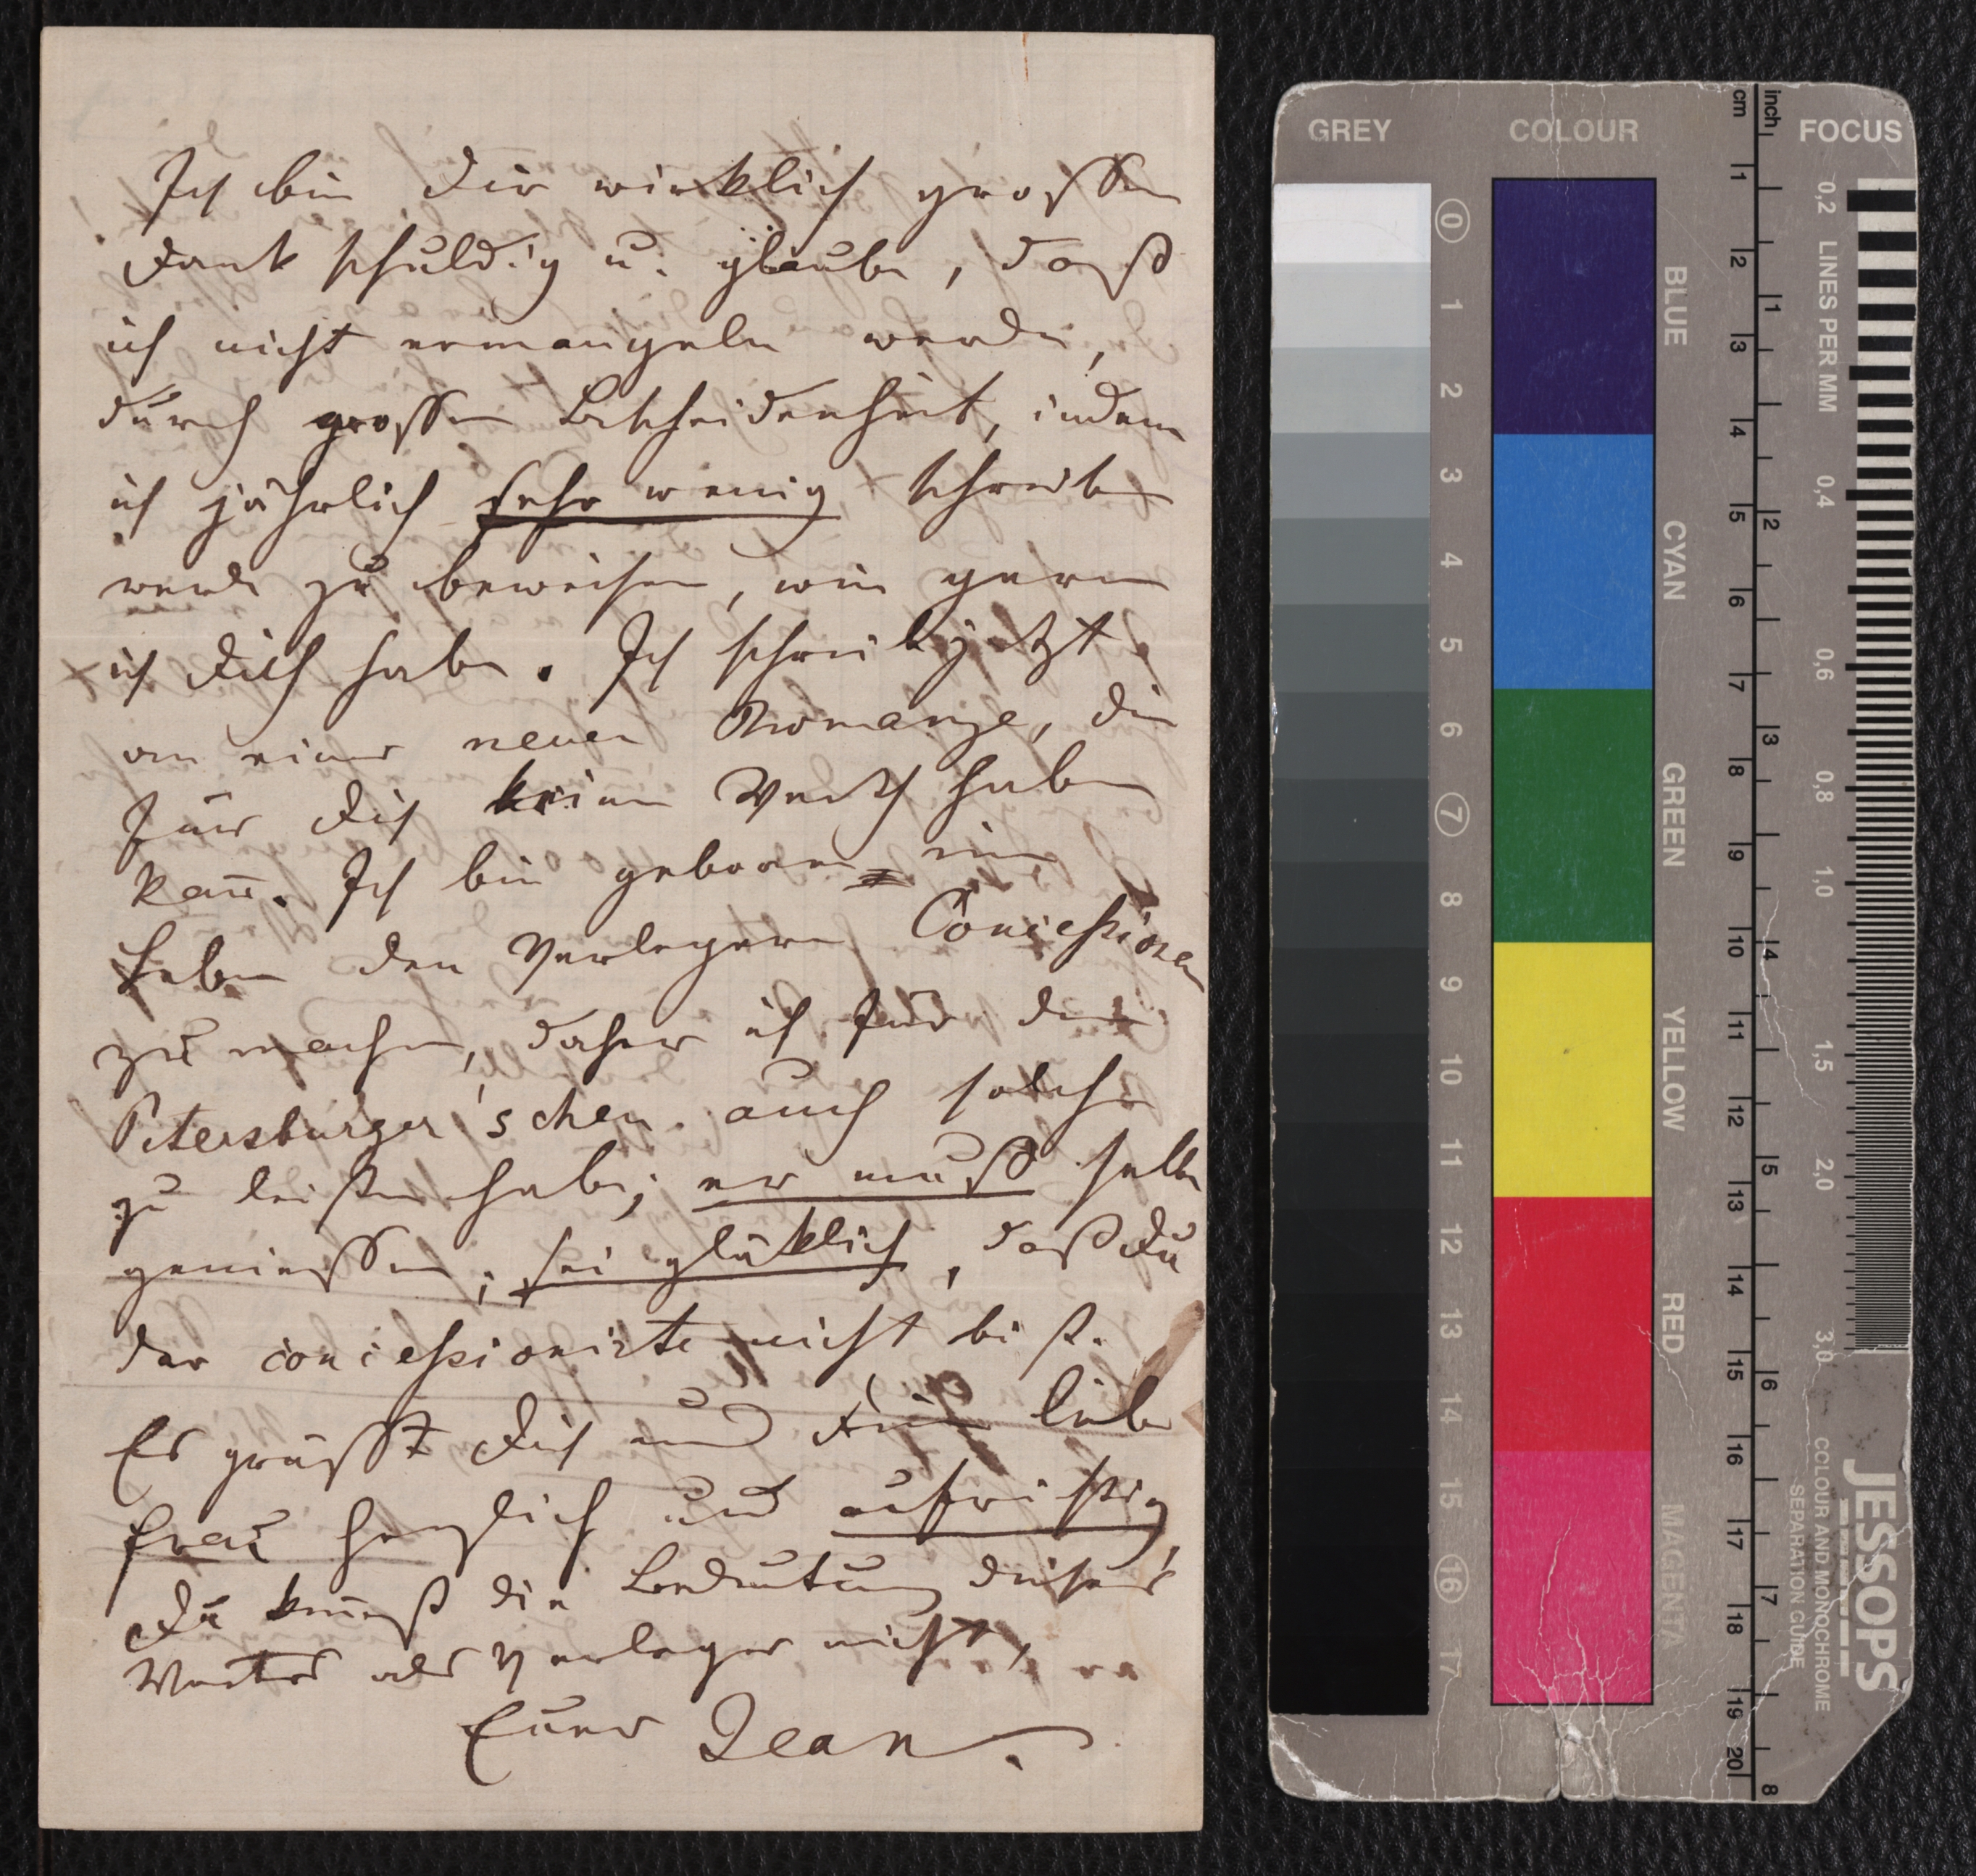 Ich bin Dir wirklich großen
Dank schuldig u. glaube, daß
ich nicht ermangeln werde,
durch großen Bescheidenheit, indem
ich jährlich sehr wenig schreiben
werde zu beweisen, wie gern
ich Dich habe. Ich schreibe jetzt
an einer neuen Romanze, die
für Dich keinen Werth haben
kann. Ich bin geboren im
Leben den Verlegern Concessionen
zu machen, daher ich für den
Petersburger'schen auch solche
zu leisten habe; er muß selbe
genießen; sei glücklich, daß Du
der concessionirte nicht bist.
Es grüßt Dich und Deine liebe
Frau herzlich und aufrichtig,
Du kennst die Bedeutung dieses
Wortes als Verleger nicht,
Euer Jean.
GREY COLOUR cm inch FOCUS
0 1 2 3 4 5 6 7 8 9 10 11 12 13 14 15 16 17
BLUE
CYAN
GREEN
YELLOW
RED
MAGENTA
1 2 3 4 5 6 7 8 9 10 11 12 13 14 15 16 17 18 19 20
1 2 3 4 5 6 7 8
0,2 LINES PER MM 0,4 0,6 0,8 1,0 1,5 2,0 3,0
JESSOPS
COLOUR AND MONOCHROME
SEPARATION GUIDE